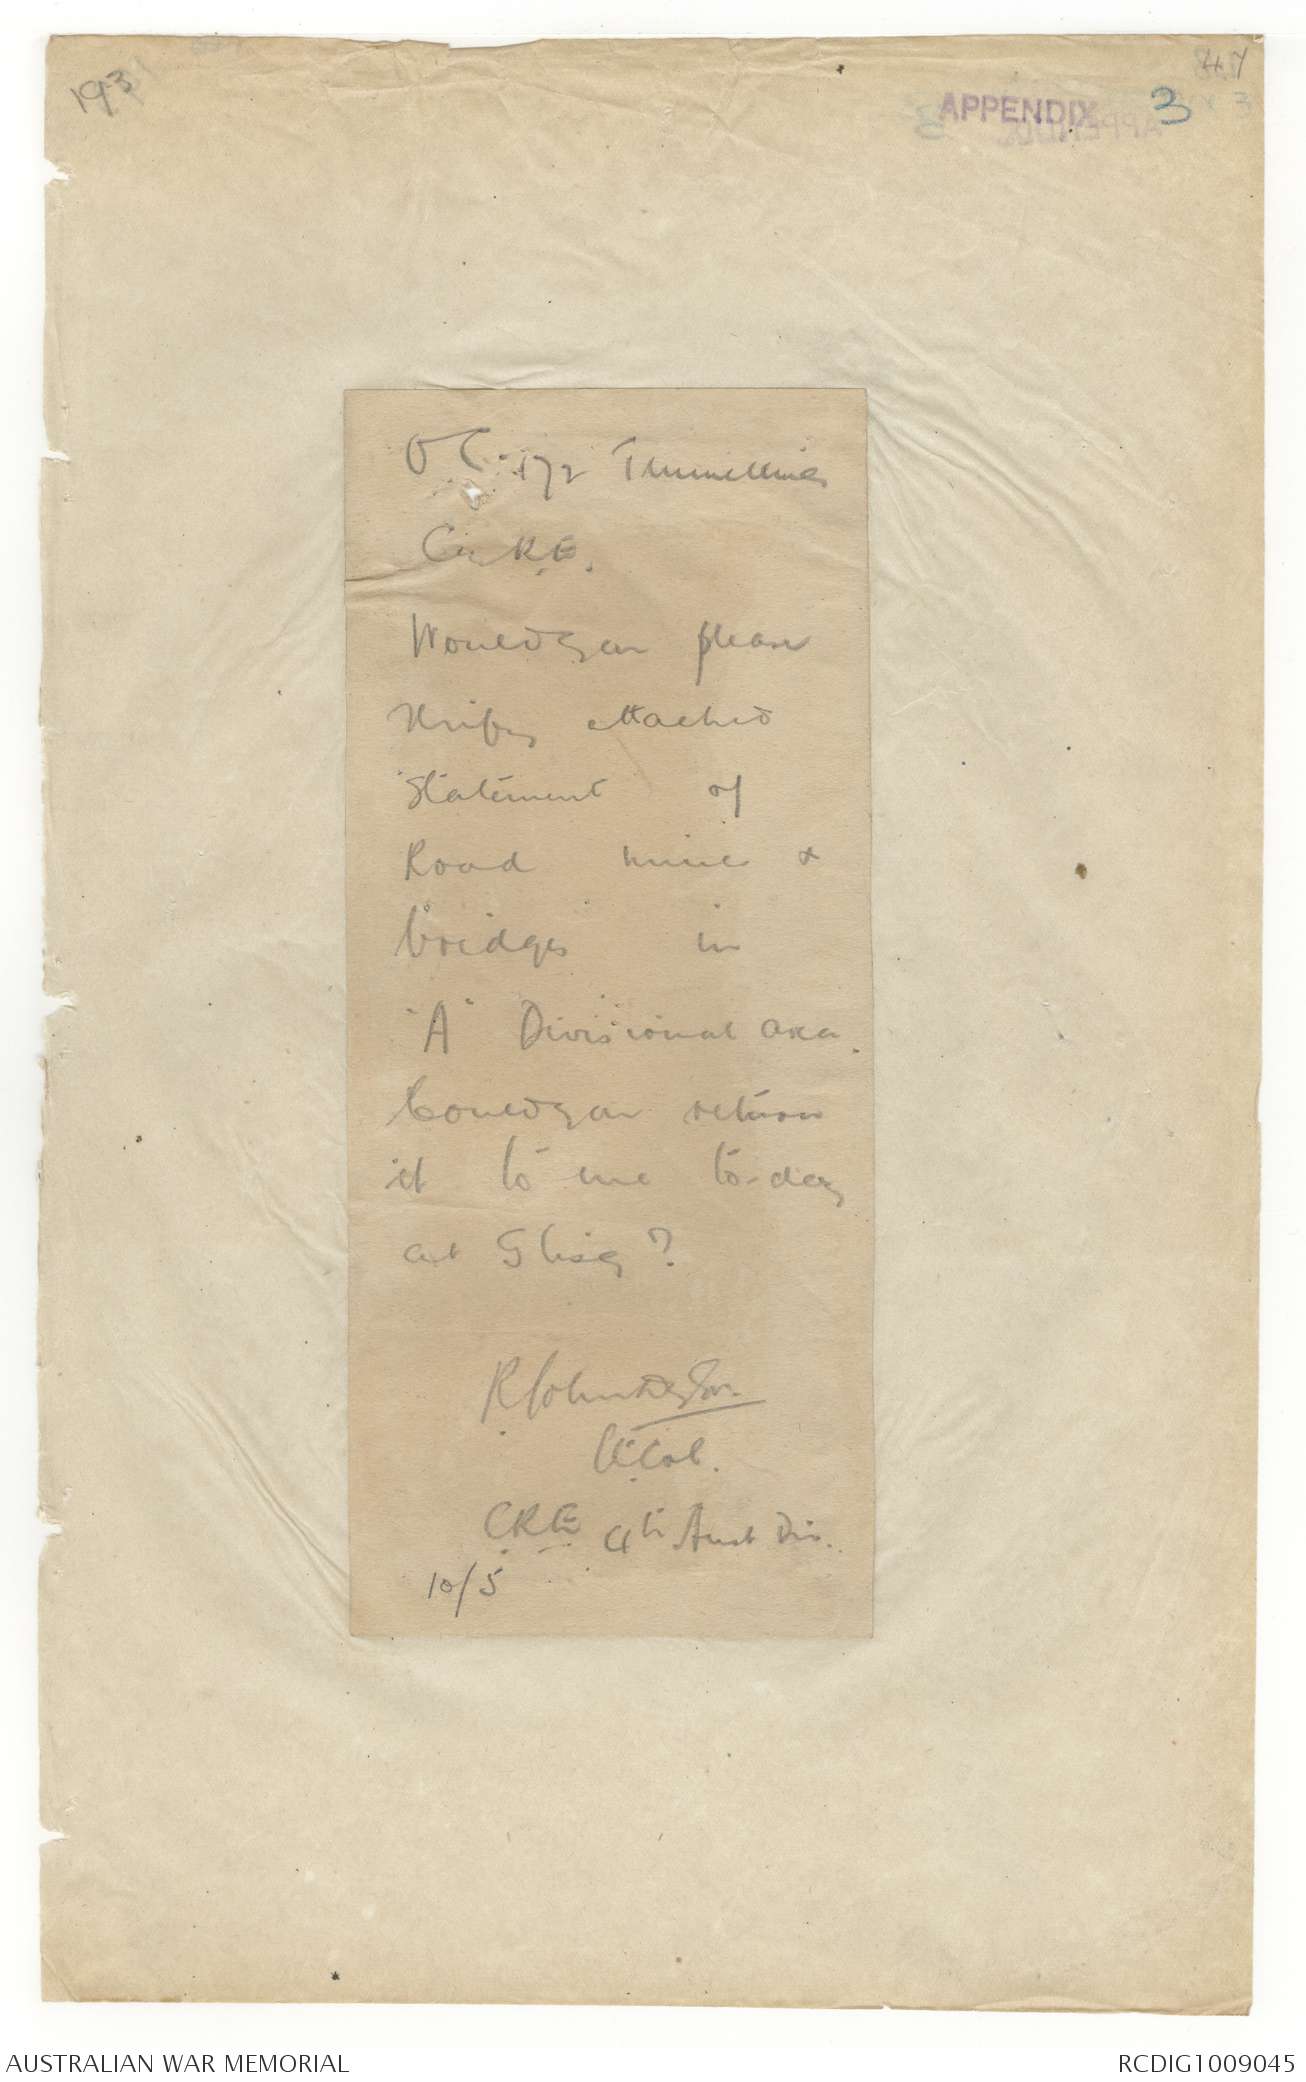 193
47
APPENDIX 3
OC. 172 Tunnelling
Coy RE.
Would you please
Verify attached
Statement of
Road mines &
bridges in
"A" Divisional area.
Could you return
it to me to-day
at Glisy?
Lt Col.
CRE 4th Aust Div.
10/5
AUSTRALIAN WAR MEMORIAL
RCDIG1009045